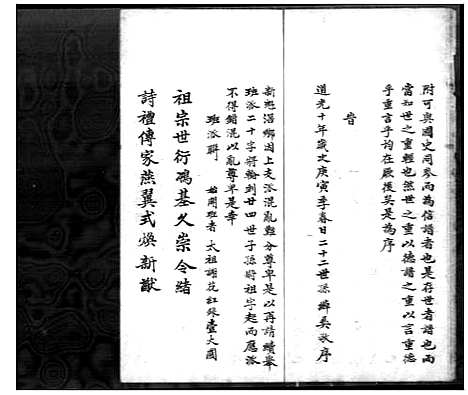 附可與國史同參而為信譜者也是存世者譜也而
當知世之重輕也然世之重以德譜之重以言重德
乎重言乎均在厥後矣是為序
旹
道光十年歲次庚寅季春日二十二世孫 奠敬序
因上支派混亂難分尊卑是以再請續舉
班派二十字將輪到廿四世子孫將祖字起而應派
不得錯混以亂尊卑是幸
班派聯 始開班者 太祖謝花紅銀壹大國
祖宗世衍鴻基久崇令緒
詩禮傳家燕翼式煥新猷